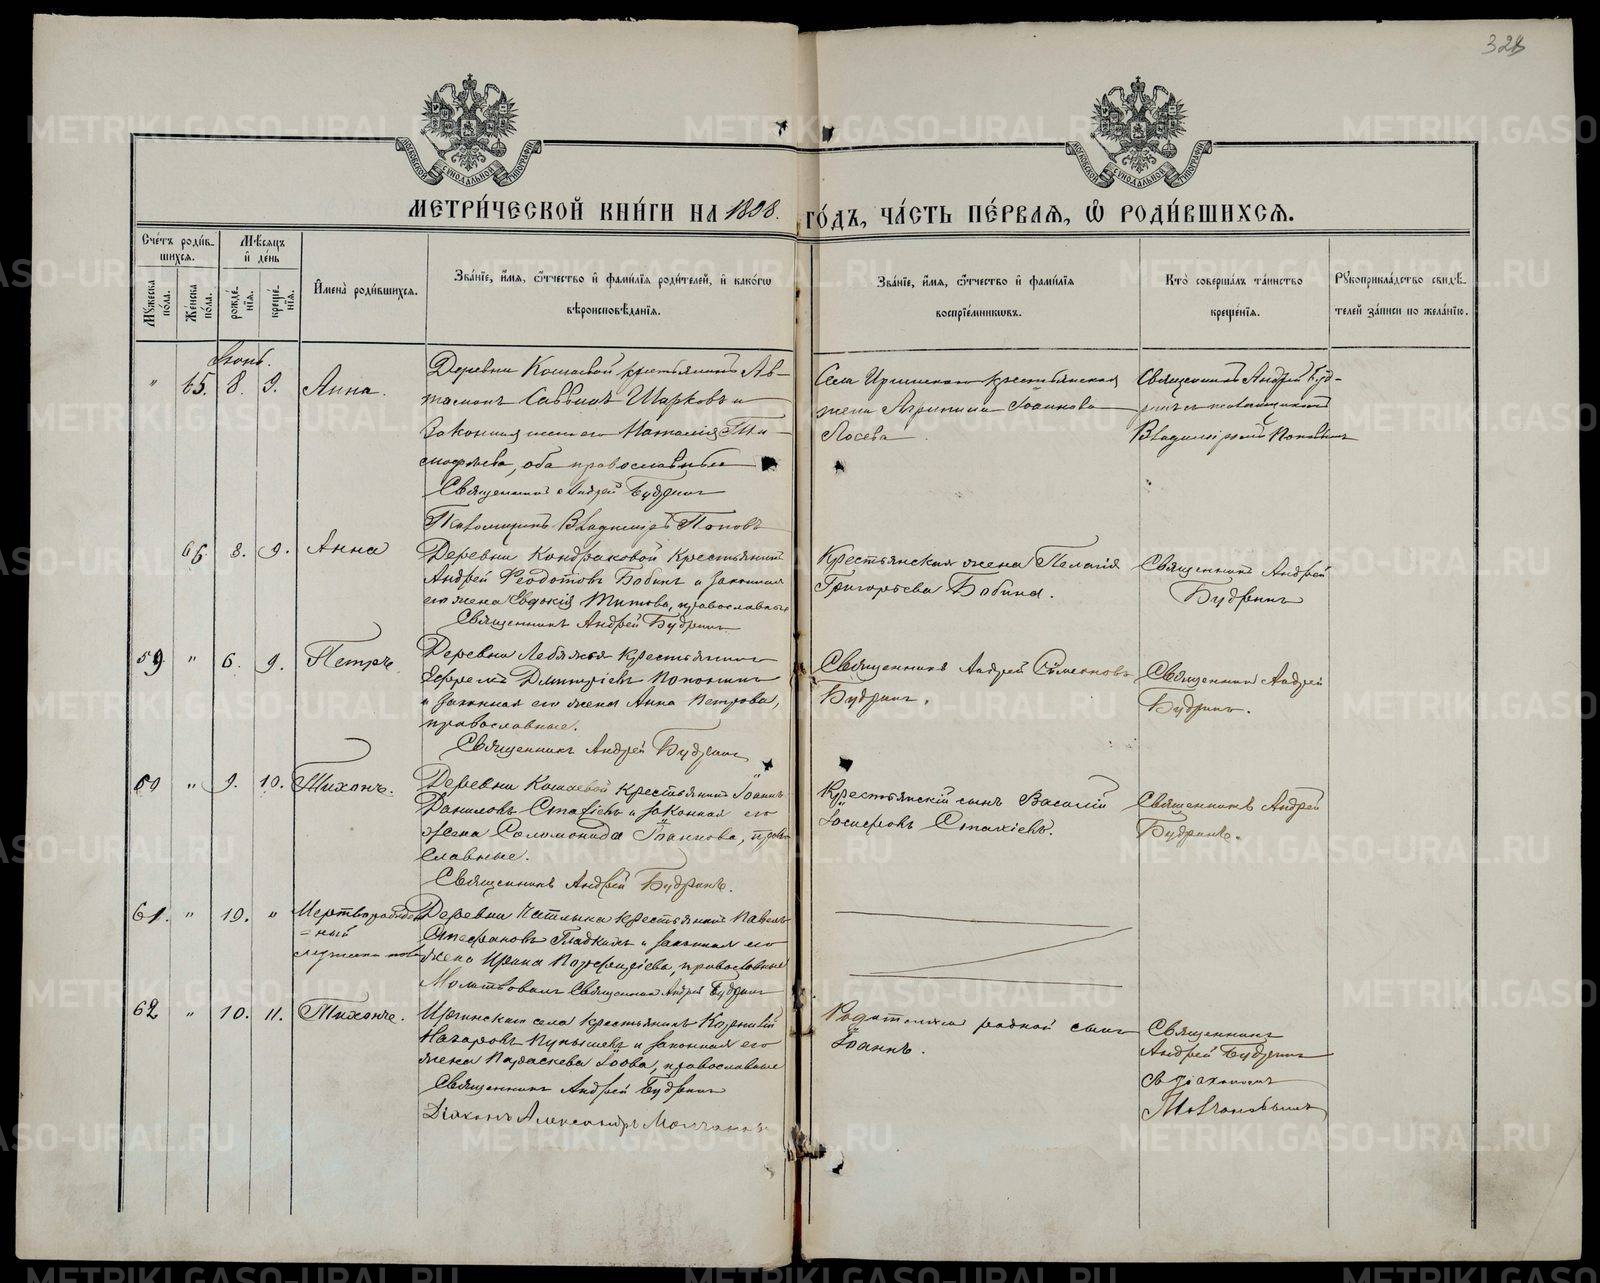 328
МОСКОВСКОЙ СѴНОДАЛЬНОЙ ТИПОГРАФІИ
МОСКОВСКОЙ СѴНОДАЛЬНОЙ ТИПОГРАФІИ
МЕТРИ́ЧЕСКОЙ КНИ́ГИ НА 1898. ГО́ДЪ, ЧА́СТЬ ПЕ́РВАЯ, Ѿ РОДИ́ВШИХСЯ.
Сче́тъ роди́в-
шихся.
Мꙋжеска по́ла.
Же́нска по́ла.
Мѣсяцъ
и҆ де́нь
рожде́-
нїя.
креще́-
нїя.
И҆мена̀ роди́вшихся.
Зва́нїе, и҆́мя, ѻ҆́тчество и҆ фами́лїя роди́телей, и҆ како́гѡ
вѣроисповѣ́данїя.
Зва́нїе, и҆́мя, ѻ҆́тчество и҆ фами́лїя
воспрїе́мникѡвъ.
Кто̀ соверша́лъ та́инство
креще́нїя.
Рꙋкоприкла́дство свидѣ́-
телей за́писи по жела́нїю.
Іюнь.
" 65. 8. 9. Анна.
Деревни Кошаевой крестьянинъ Ав-
тамонъ Саввинъ Шарковъ и
законная жена его Наталія Ти-
мофѣева, оба православные
Священникъ Андрей Будринъ
Псаломщикъ Владиміръ Поповъ
Села Иргинскаго крестьянская
жена Агрипина Іоаннова
Лосева
Священникъ Андрей Буд-
ринъ съ псаломщикомъ
Владиміромъ Поповымъ
66. 8. 9. Анна
Деревни Кондраковой крестьянинъ
Андрей Ѳеодотовъ Бабинъ и законная
его жена Евдокія Титова, православные
Священникъ Андрей Будринъ
Крестьянская жена Пелагія
Григорьева Бабина.
Священникъ Андрей
Будринъ
59 " 6. 9. Петръ.
Деревни Лебяжья крестьянинъ
Ефремъ Димитріевъ
и законная его жена Анна Петрова,
православные.
Священникъ Андрей Будринъ
Священникъ Андрей Симеоновъ
Будринъ.
Священникъ Андрей
Будринъ.
60 " 9. 10. Тихонъ.
Деревни Кошаевой крестьянинъ Іоаннъ
Даниловъ Стахіевъ и законная его
жена Соломонида Іоаннова, право-
славные.
Священникъ Андрей Будринъ.
Крестьянскій сынъ Василій
Іосифовъ Стахіевъ.
Священникъ Андрей
Будринъ.
61. " 10. " Мертворожден-
=ный
мужеска пола
Деревни крестьянинъ Павелъ
Стефановъ Гладкихъ и законная его
жена Ирина Порфиріева, православные
Молитвовалъ Священникъ Андрей Будринъ
62 " 10. 11. Тихонъ.
Иргинскаго села крестьянинъ Корнилій
Назаровъ Пупышевъ и законная его
жена Параскева Іовова, православные
Священникъ Андрей Будринъ
Діаконъ Александръ Молчановъ
Родителей родной сынъ
Іоаннъ.
Священникъ
Андрей Будринъ
съ діакономъ
Молчановымъ
METRIKI.GASO-URAL.RU